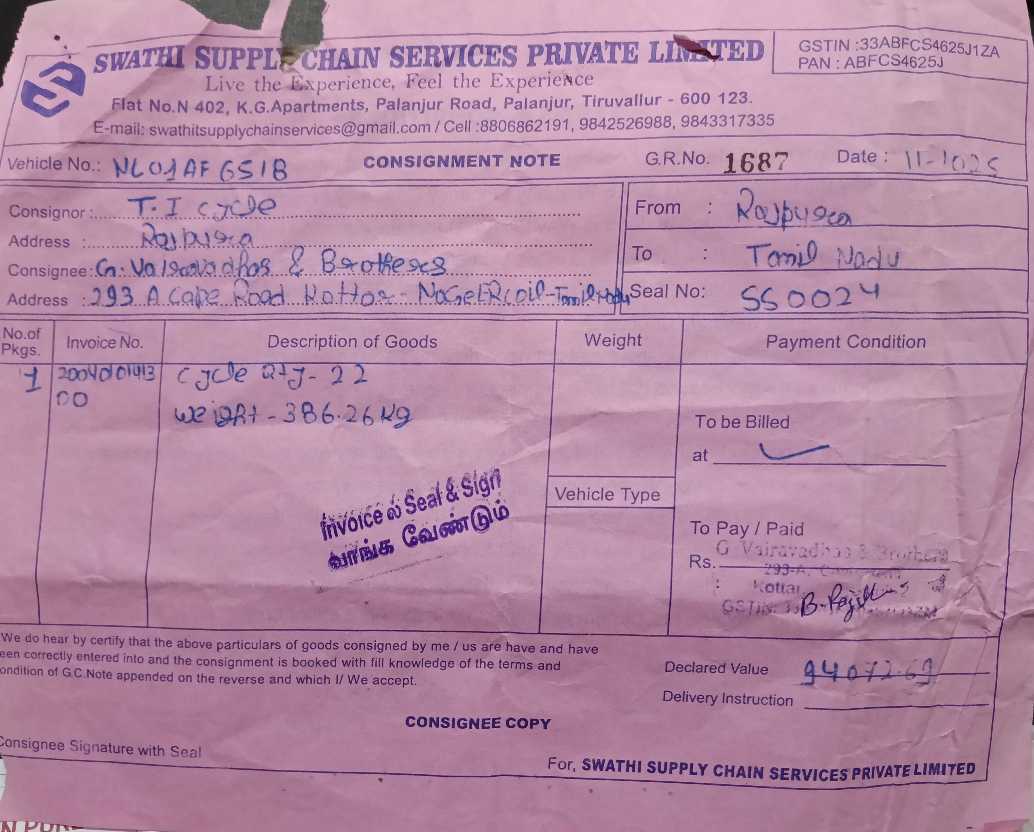 SWATHI SUPPLY CHAIN SERVICES PRIVATE LIMITED
GSTIN :33ABFCS4625J1ZA
PAN : ABFCS4625J
Live the Experience, Feel the Experience
Flat No.N 402, K.G.Apartments, Palanjur Road, Palanjur, Tiruvallur - 600 123.
E-mail: swathitsupplychainservices@gmail.com / Cell :8806862191, 9842526988, 9843317335
Vehicle No.: NL01AF6518 CONSIGNMENT NOTE G.R.No. 1687 Date : 11-1025
Consignor : T.I cycle
Address : Rajpura
Consignee: G. Vairavadhas & Brothers
Address : 293 A Cape Road Kottar - NaGeRcoil-Tamil Nadu
From : Rajpura
To : Tamil Nadu
Seal No: SS0024
No.of Pkgs. Invoice No. Description of Goods Weight Payment Condition
1 20040101413 cycle qty- 22
00 weight - 386.26 Kg
To be Billed
at
Invoice ல் Seal & Sign
வாங்க வேண்டும்
Vehicle Type
To Pay / Paid
Rs. G. Vairavadhas & Brothers
293-A,
Kottar
GSTIN: 33
We do hear by certify that the above particulars of goods consigned by me / us are have and have
een correctly entered into and the consignment is booked with fill knowledge of the terms and
ondition of G.C.Note appended on the reverse and which I/ We accept.
Declared Value 94072.69
Delivery Instruction
CONSIGNEE COPY
Consignee Signature with Seal
For, SWATHI SUPPLY CHAIN SERVICES PRIVATE LIMITED